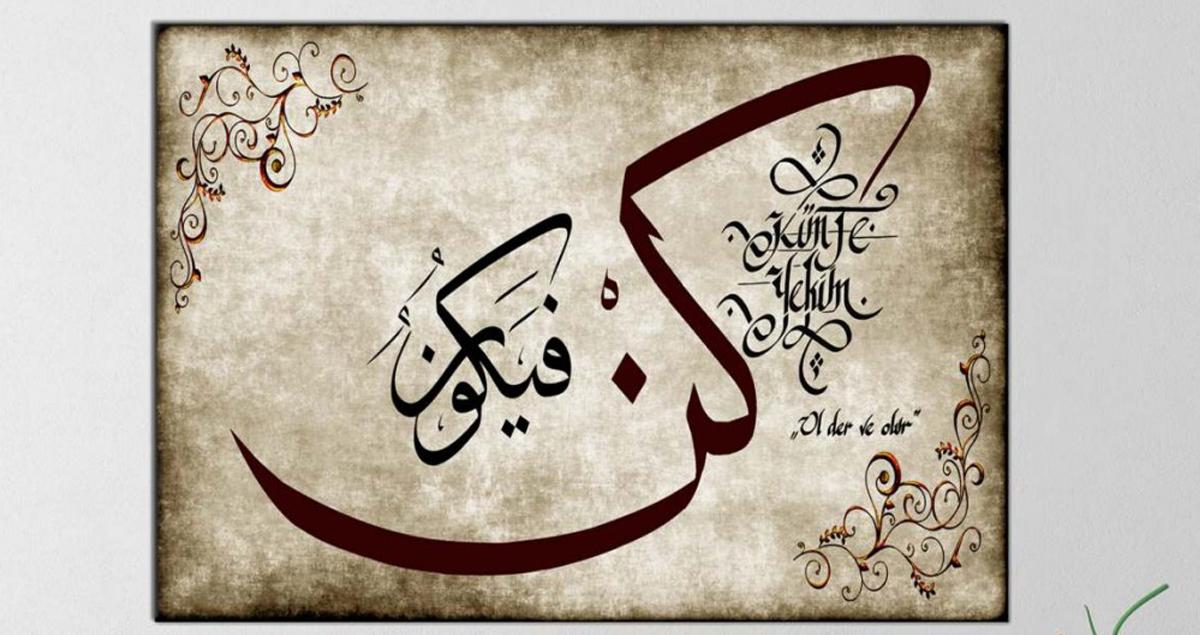 كُنْ
فَيَكُونُ
Künfe
Yekün
„Ol der ve olur”